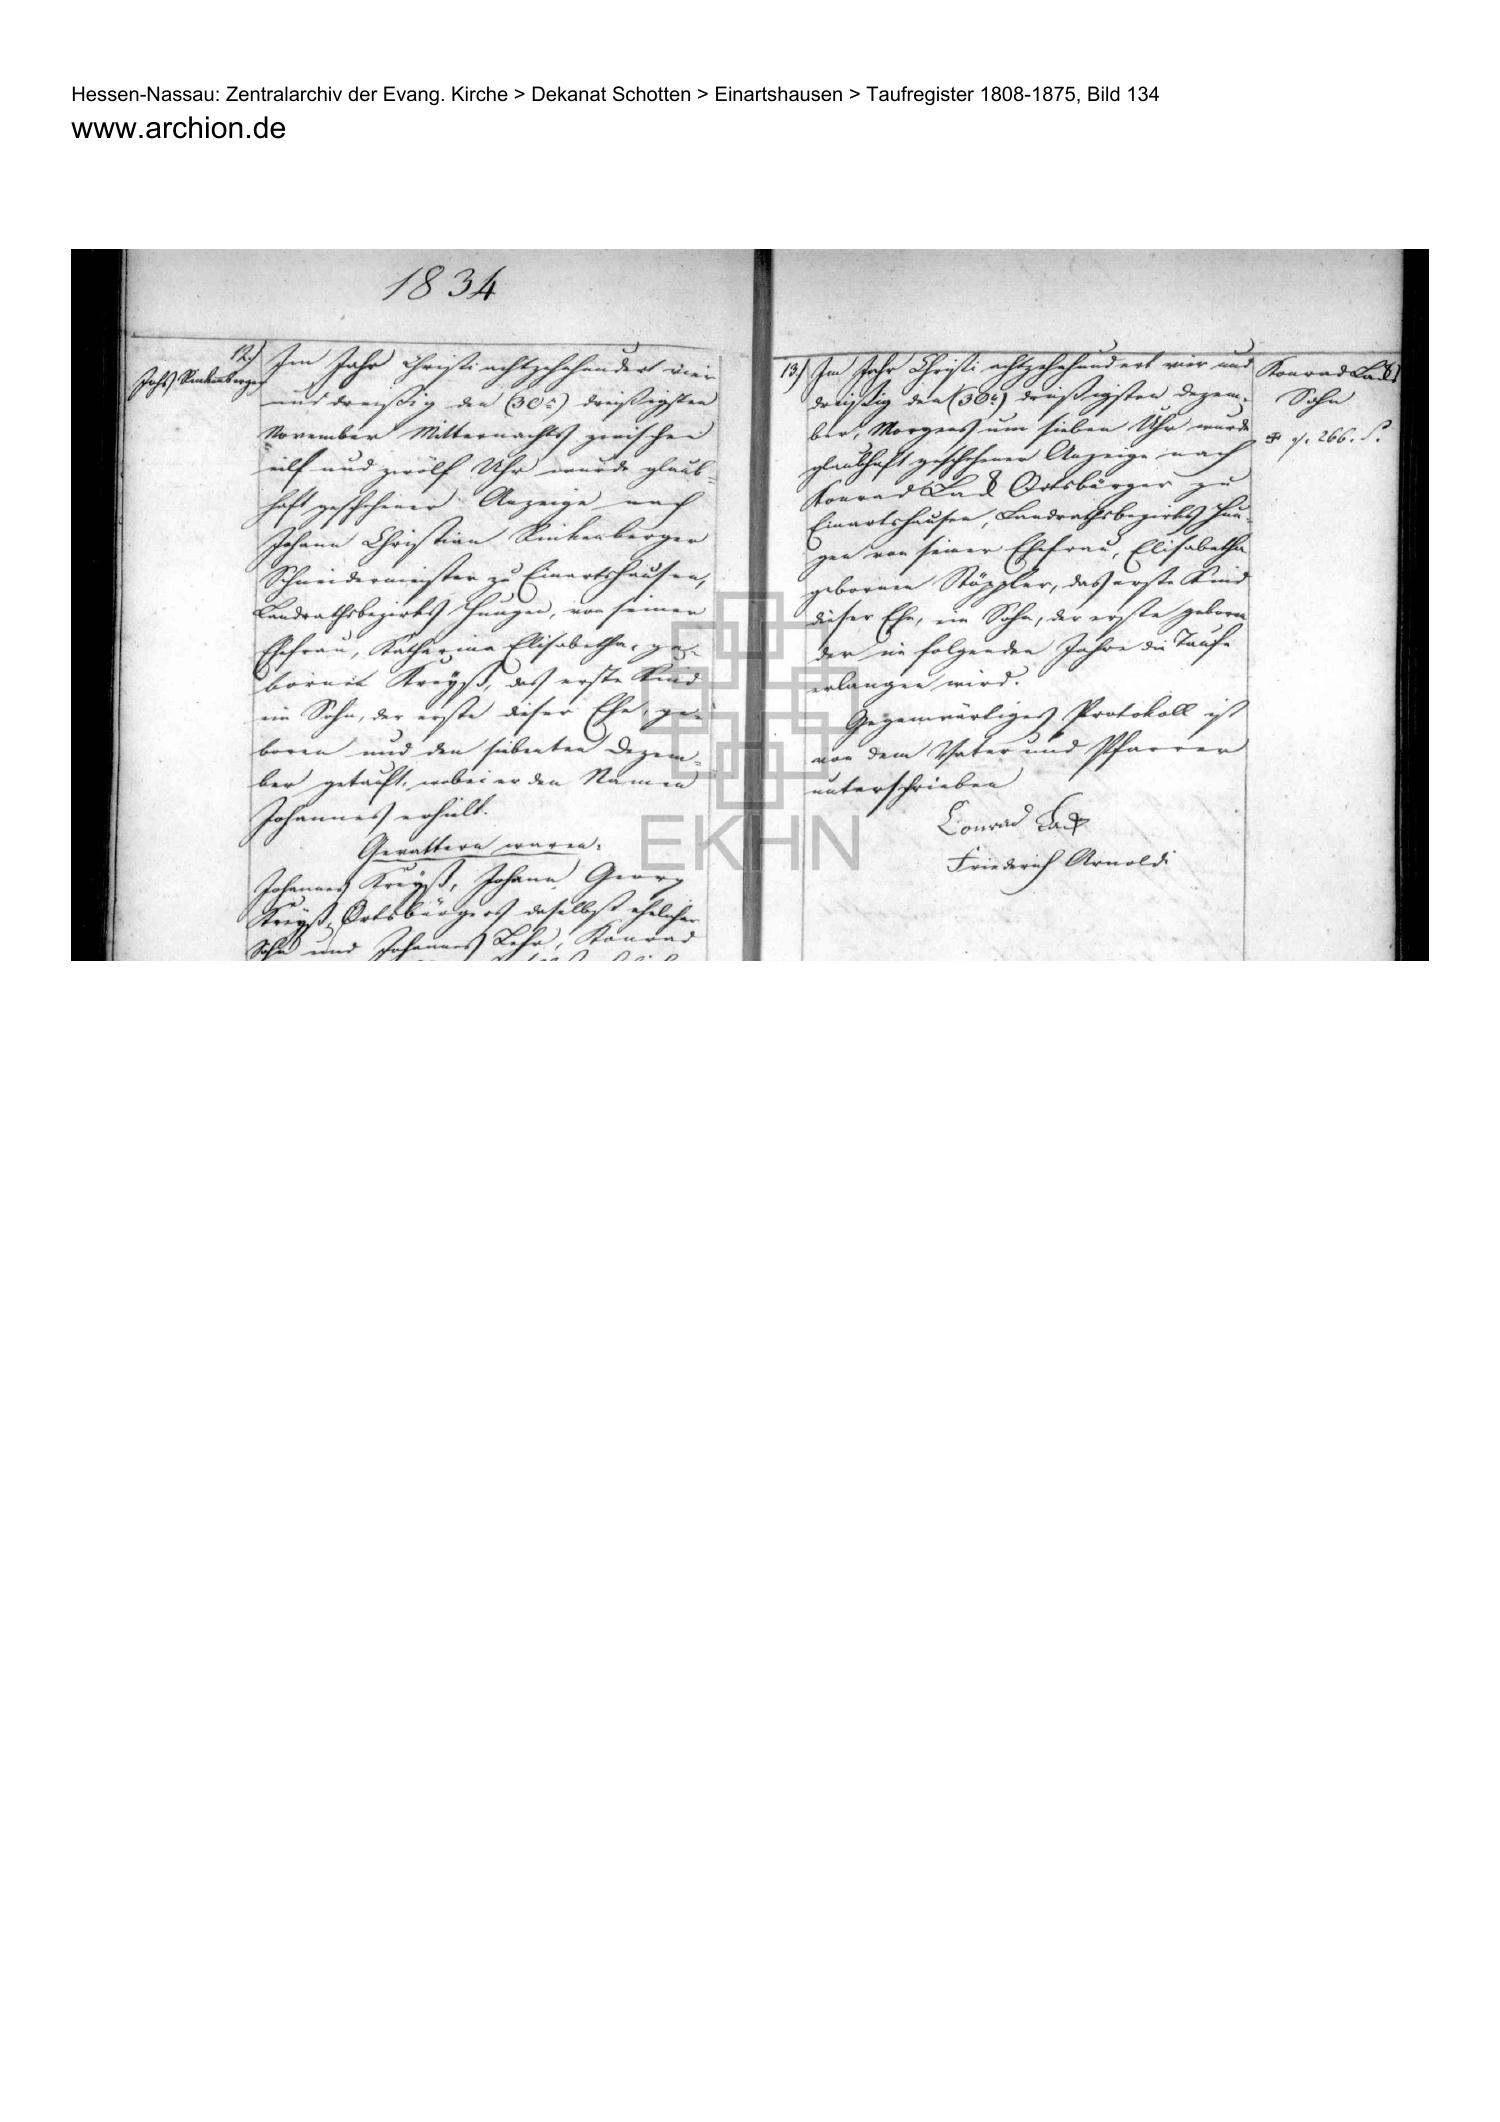 Hessen-Nassau: Zentralarchiv der Evang. Kirche > Dekanat Schotten > Einartshausen > Taufregister 1808-1875, Bild 134
www.archion.de
1834
12.)
Johs Rinkenberger
Im Jahr Christi achtzehnhundert vier
und dreißig den (30t) dreißigsten
November Mitternachts zwischen
eilf und zwölf Uhr wurde glaub-
haft geschehener Anzeige nach
Johann Christian Rinkenberger
Schneidermeister zu Einartshausen,
Landrathsbezirks Hungen, von seiner
Ehefrau, Katharina Elisabetha, ge-
borne Kreyß, das erste Kind
ein Sohn, der erste dieser Ehe, ge-
boren und den siebenten Dezem-
ber getauft, wobei er den Namen
Johannes erhielt.
Gevattern waren:
Johannes Kreyß, Johann Georg
Kreyß, Ortsbürgers daselbst ehelicher
Sohn und Johannes Lehr, Konrad
13.) Im Jahr Christi achtzehnhundert vier und
dreißig den (30t) dreißigsten Dezem-
ber, Morgens um sieben Uhr wurde
glaubhaft geschehener Anzeige nach
Konrad Ortsbürger zu
Einartshausen, Landrathsbezirks Hun-
gen von seiner Ehefrau, Elisabetha
geborenen Stöppler, das erste Kind
dieser Ehe, ein Sohn, der erste geboren
der im folgenden Jahre die Taufe
erlangen wird.
Gegenwärtiges Protokoll ist
von dem Vater und Pfarrer
unterschrieben
Conrad
Friederich Arnoldi
Konrad
Sohn
p. 266.
EKHN